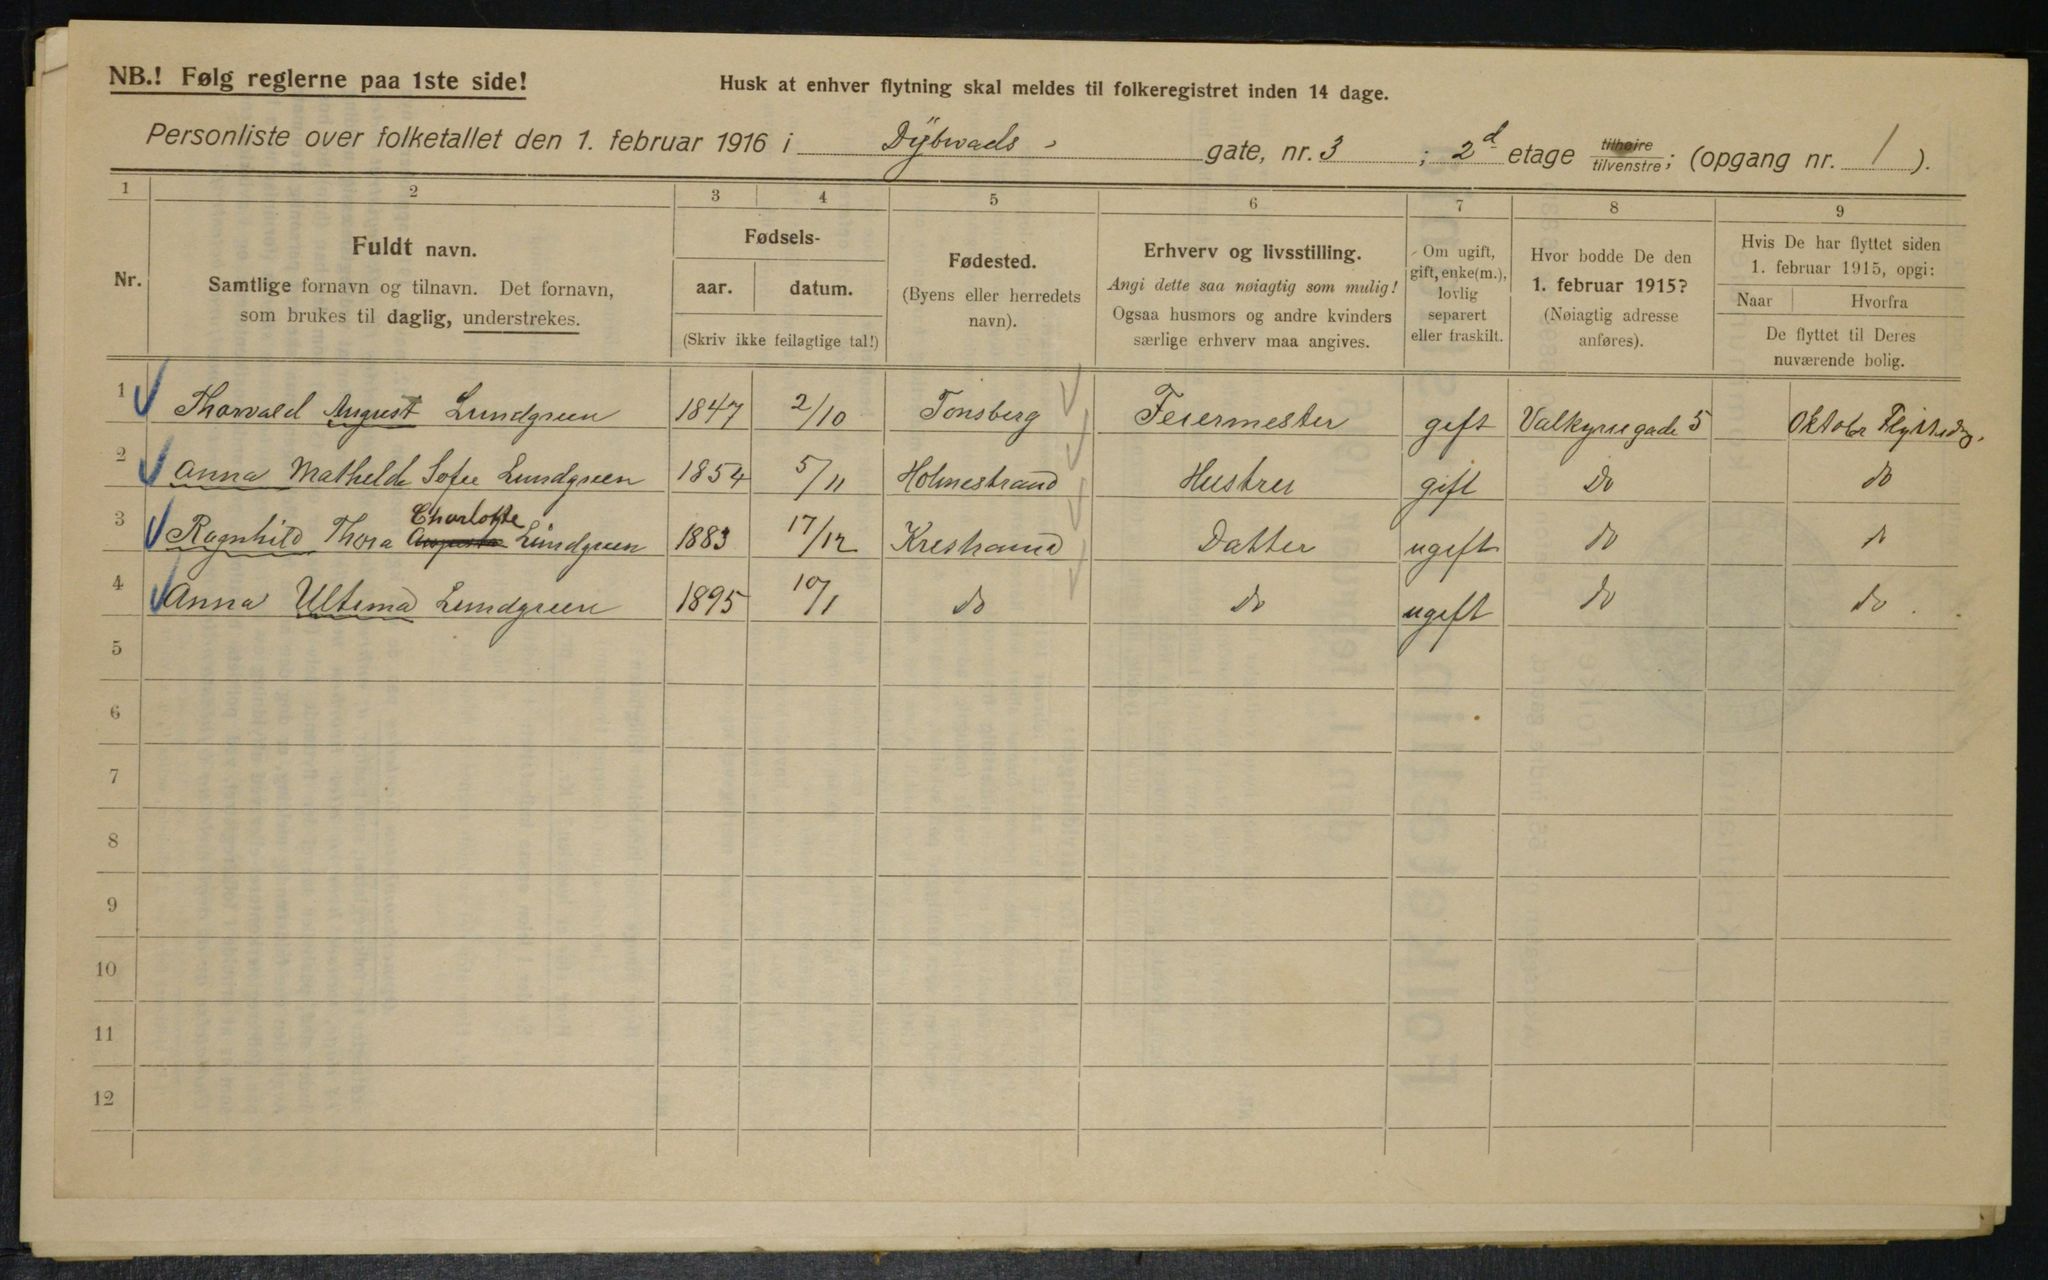 NB.! Følg reglerne paa 1ste side!
Husk at enhver flytning skal meldes til folkeregistret inden 14 dage.
Personliste over folketallet den 1. februar 1916 i Dÿbwads gate, nr. 3 ; 2d etage tilhøire/tilvenstre; (opgang nr. 1 ).
1 2 3 4 5 6 7 8 9
Nr.
Fuldt navn.
Samtlige fornavn og tilnavn. Det fornavn,
som brukes til daglig, understrekes.
Fødsels-
aar. datum.
(Skriv ikke feilagtige tal!)
Fødested.
(Byens eller herredets
navn).
Erhverv og livsstilling.
Angi dette saa nøiagtig som mulig!
Ogsaa husmors og andre kvinders
særlige erhverv maa angives.
Om ugift,
gift, enke(m.),
lovlig
separert
eller fraskilt.
Hvor bodde De den
1. februar 1915?
(Nøiagtig adresse
anføres).
Hvis De har flyttet siden
1. februar 1915, opgi:
Naar Hvorfra
De flyttet til Deres
nuværende bolig.
1 Thorvald August Lundgreen 1847 2/10 Tønsberg Feiermester gift Valkyriegade 5 Oktober
2 Anna Mathelde Sofie Lundgreen 1854 5/11 Holmestrand Hustru gift do do
Charlotte
3 Ragnhild Thora Augusta Lundgreen 1883 17/12 Krestrand Datter ugift do do
4 Anna Ultima Lundgreen 1895 10/1 do do ugift do do
5
6
7
8
9
10
11
12